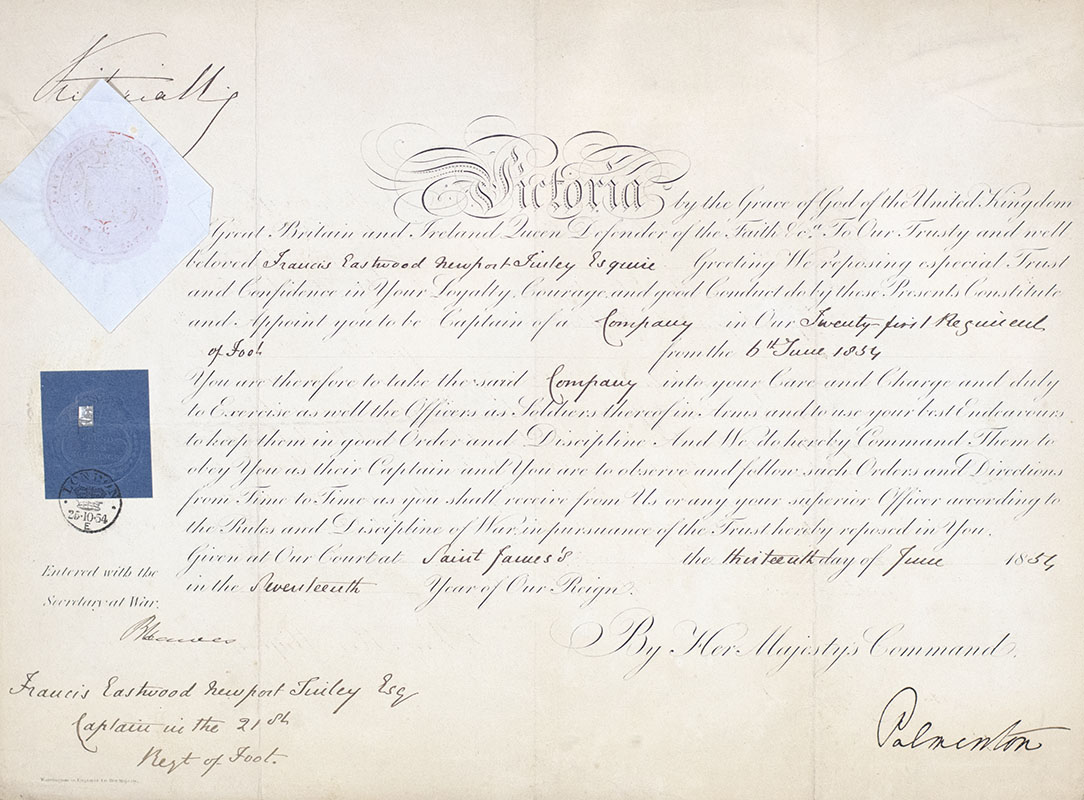 Victoria R
Victoria by the Grace of God of the United Kingdom
Great Britain and Ireland Queen Defender of the Faith &c.ª To Our Trusty and well
beloved Francis Eastwood Newport Tinley Esquire Greeting We reposing especial Trust
and Confidence in Your Loyalty, Courage, and good Conduct do by these Presents Constitute
and Appoint you to be Captain of a Company in Our Twenty-first Regiment
of Foot from the 6th June 1854
You are therefore to take the said Company into your Care and Charge and duly
to Exercise as well the Officers as Soldiers thereof in Arms and to use your best Endeavours
to keep them in good Order and Discipline And We do hereby Command Them to
obey You as their Captain and You are to observe and follow such Orders and Directions
from Time to Time as you shall receive from Us or any your Superior Officer according to
the Rules and Discipline of War, in pursuance of the Trust hereby reposed in You.
Given at Our Court at Saint James's the thirteenth day of June 1854
in the Seventeenth Year of Our Reign.
LONDON
25·10·54
E
Entered with the
Secretary at War.
BHawes
By Her Majesty's Command.
Francis Eastwood Newport Tinley Esq
Captain in the 21st
Regt of Foot.
Palmerston